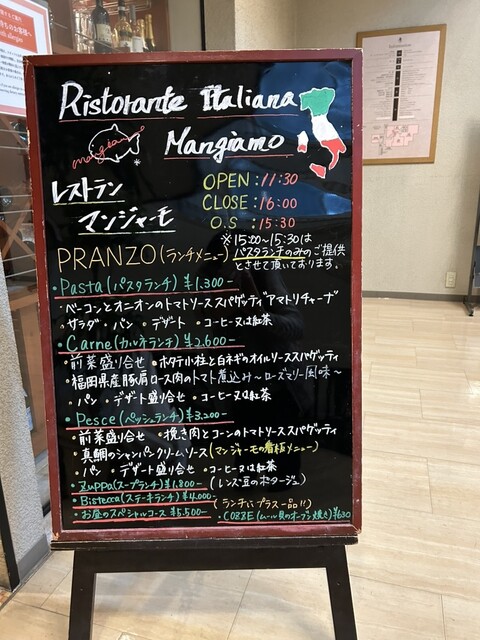 Ristorante Italiana
Mangiamo
mangiamo
レストラン
マンジャーモ
OPEN:11:30
CLOSE:16:00
O.S:15:30
※15:00~15:30は
パスタランチのみのご提供
とさせて頂いております。
PRANZO(ランチメニュー)
・Pasta(パスタランチ)¥1.300-
・ベーコンとオニオンのトマトソーススパゲッティアマトリチャーナ
・サラダ・パン・デザート・コーヒー又は紅茶
・Carne(カルネランチ)¥2.600-
・前菜盛り合せ・ホタテ小柱と白ネギのオイルソーススパゲッティ
・福岡県産豚肩ロース肉のトマト煮込み~ローズマリー風味~
・パン・デザート盛り合せ・コーヒー又は紅茶
・Pesce(ペッシュランチ)¥3.200-
・前菜盛り合せ・挽き肉とコーンのトマトソーススパゲッティ
・真鯛のシャンパンクリームソース(マンジャーモの看板メニュー)
・パン・デザート盛り合せ・コーヒー又は紅茶
・ZuPPa(スープランチ)¥1.800-(レンズ豆のポタージュ)
・Bistecca(ステーキランチ)¥4.000-(ランチにプラス一品!!)
・お昼のスペシャルコース¥5.500-・COZZE(ムール貝のオーブン焼き)¥630